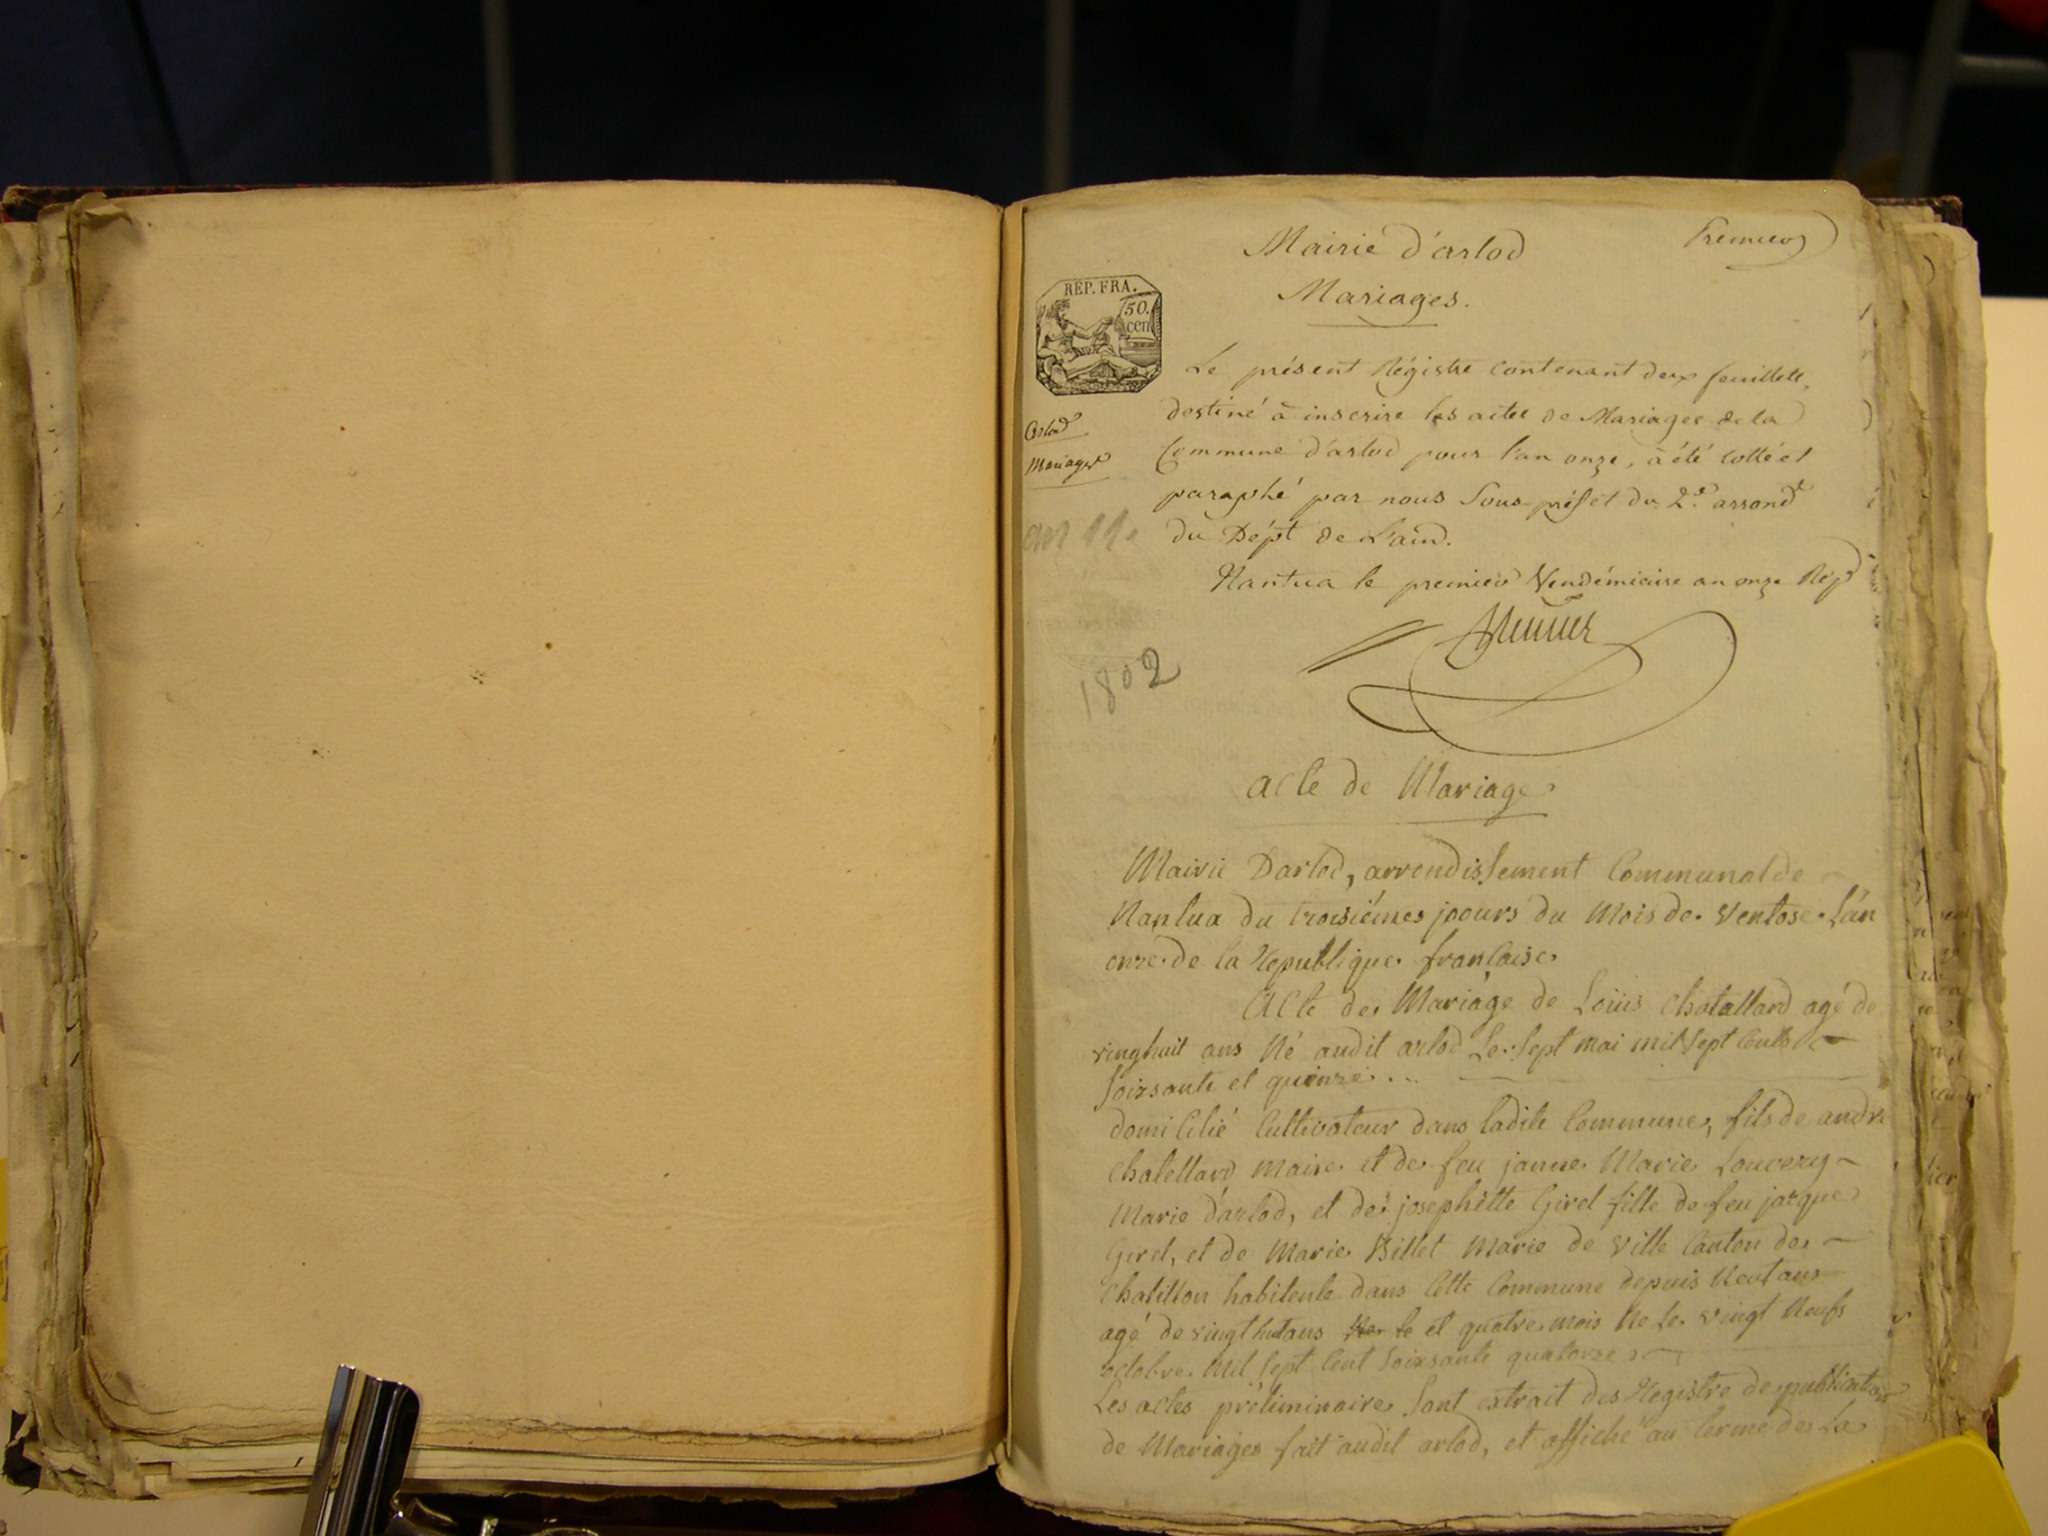 Mairie d'arlod
Premier
Mariages.
RÉP. FRA.
50.
cen
Arlod
Mariages
an 11.
1802
Le présent Régistre contenant deux feuillets,
destiné à inscrire les actes de Mariages de la
Commune d'arlod pour l'an onze, à été cotté et
paraphé par nous Sous-préfet du 2.e arrondt
du Dépt de L'ain.
Nantua le premier Vendémiaire an onze Rép
acte de Mariage
Mairie Darlod, arrondissement Communal de
Nantua du troisiémes joours du Mois de Ventose L'an
onze de la Republique francaise
Acte de Mariage de Loüis Chatallard agé de
vinghuit ans Né audit arlod Le Sept mai mil Sept Cents
Soixsante et quinze ...
domiCilié Cultivateur dans ladite Commune, fils de andré
Chatellard maire et de feu janne Marie Louvery
Marie d'arlod, et de josephètte Girel fille de feu jacque
Girel, et de Marie Billet Marie de Ville Canton de
Chatillon habitente dans Cette Commune depuis Neut ans
agé de vingt hut ans et quatre mois Ne Le vingt Neufs
octobre Mil Sept Cent Soixsante quatorze
Les actes préliminaire Sont extrait des Registre de publication
de Mariages fait audit arlod, et affiché au terme de La